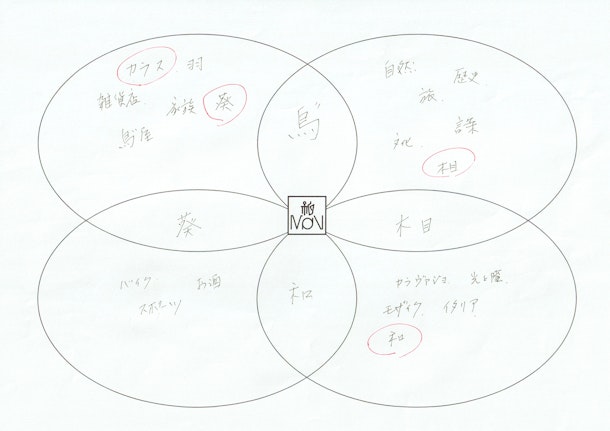 カラス 羽
雑貨店 家族 葵
自然 歴史
旅
言葉
文化
木目
葵
木目
和
バイク お酒
スポーツ
カラヴァジョ 光と陰
モザイク イタリア
和